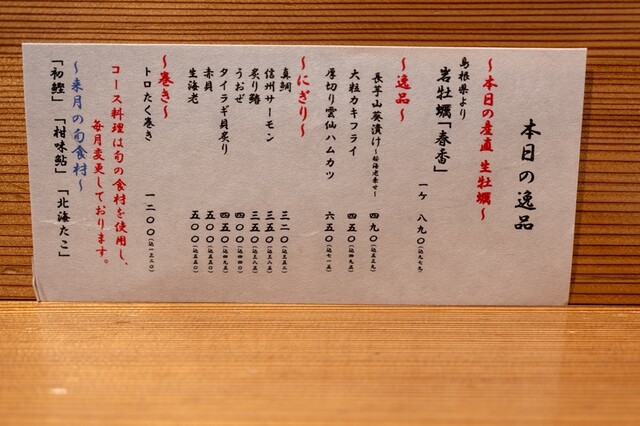 本日の逸品
～本日の産直 生牡蠣～
島根県より
岩牡蠣「春香」
一ケ 八九〇(込九七九)
～逸品～
長芋山葵漬け～桜海老乗せ～ 四九〇(込五三九)
大粒カキフライ 四五〇(込四九五)
厚切り雲仙ハムカツ 六五〇(込七一五)
～にぎり～
真鯛 三二〇(込三五二)
信州サーモン 三五〇(込三八五)
炙り鰆 三五〇(込三八五)
うおぜ 四〇〇(込四四〇)
タイラギ貝炙り 四五〇(込四九五)
赤貝 五〇〇(込五五〇)
生海老 五〇〇(込五五〇)
～巻き～
トロたく巻き 一二〇〇(込一三二〇)
コース料理は旬の食材を使用し、
毎月変更しております。
～来月の旬食材～
「初鰹」「柑味鮎」「北海たこ」